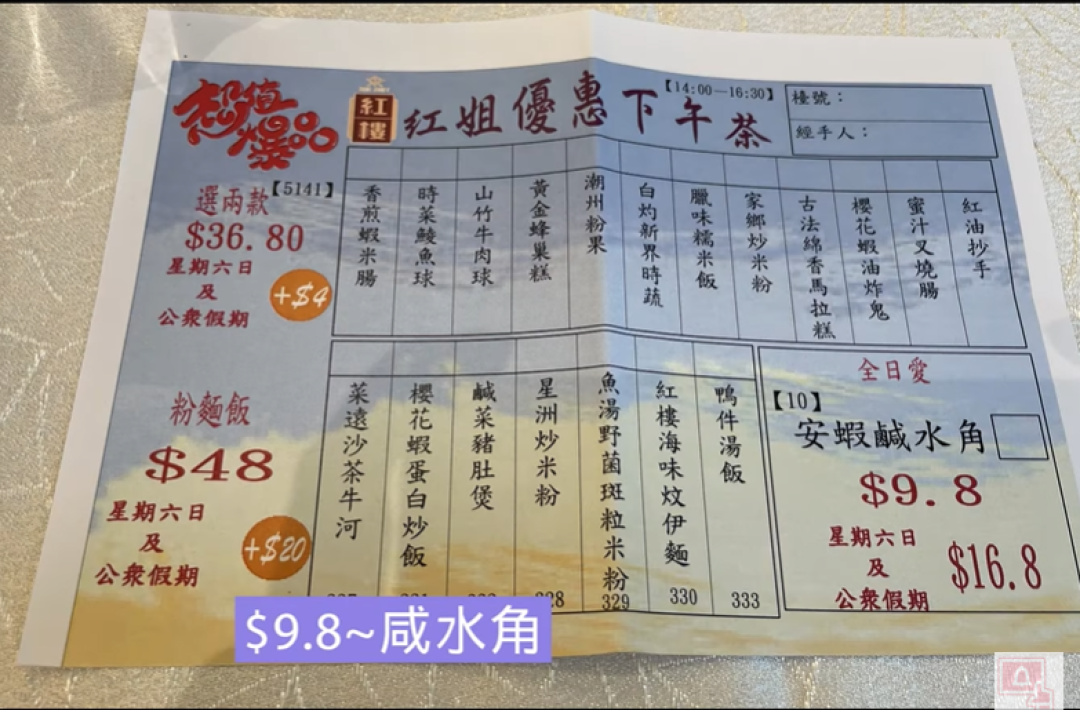 超值
爆品
紅樓
紅姐優惠下午茶
【14:00—16:30】
檯號：
經手人：
【5141】
選兩款
$36.80
星期六日
及
公衆假期
+$4
香煎蝦米腸
時菜鯪魚球
山竹牛肉球
黃金蜂巢糕
潮州粉果
白灼新界時蔬
臘味糯米飯
家鄉炒米粉
古法綿香馬拉糕
櫻花蝦油炸鬼
蜜汁叉燒腸
紅油抄手
粉麵飯
$48
星期六日
及
公衆假期
+$20
菜遠沙茶牛河
櫻花蝦蛋白炒飯
鹹菜豬肚煲
星洲炒米粉
魚湯野菌斑粒米粉
329
紅樓海味炆伊麵
330
鴨件湯飯
333
全日愛
【10】
安蝦鹹水角
$9.8
星期六日
及
公衆假期
$16.8
$9.8~咸水角